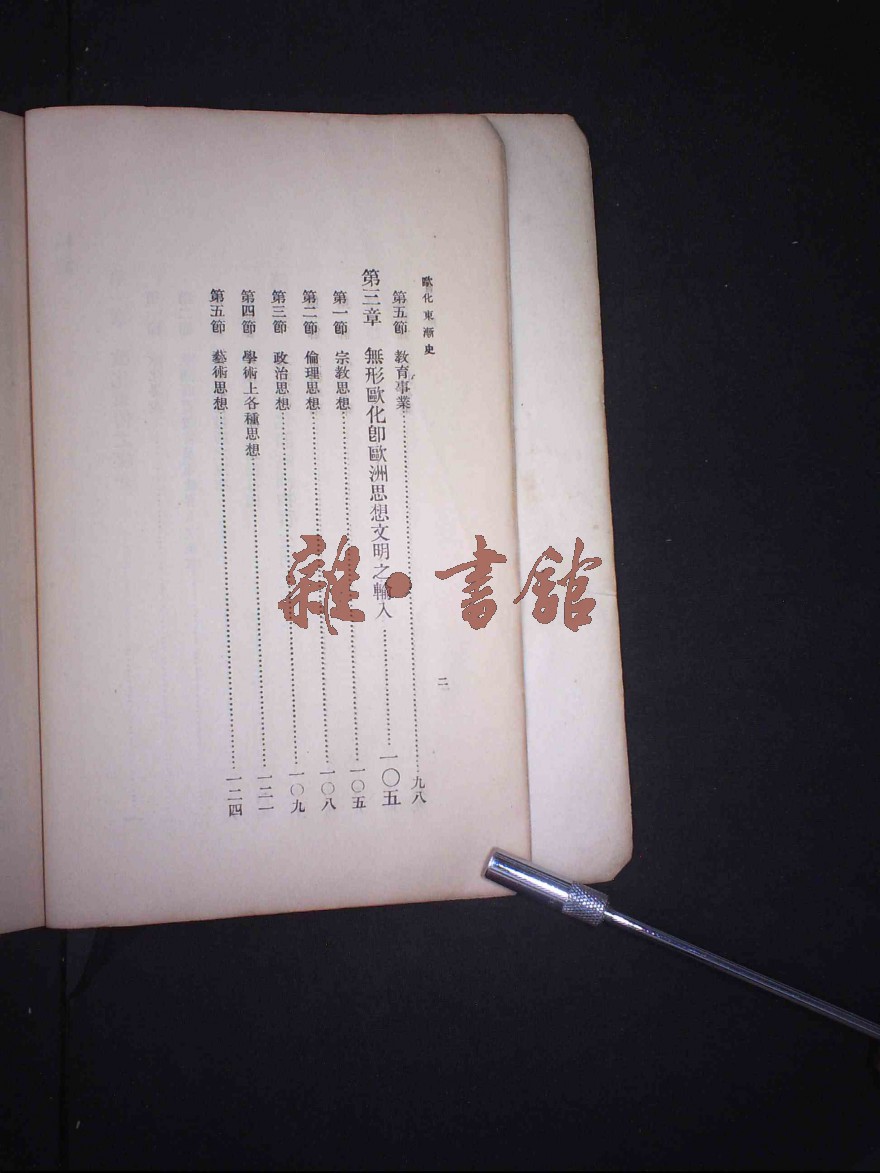 歐化東漸史
第五節 教育事業……九八
第三章 無形歐化卽歐洲思想文明之輸入……一〇五
第一節 宗教思想……一〇五
第二節 倫理思想……一〇八
第三節 政治思想……一〇九
第四節 學術上各種思想……一二一
第五節 藝術思想……一二四
二
雜·書館